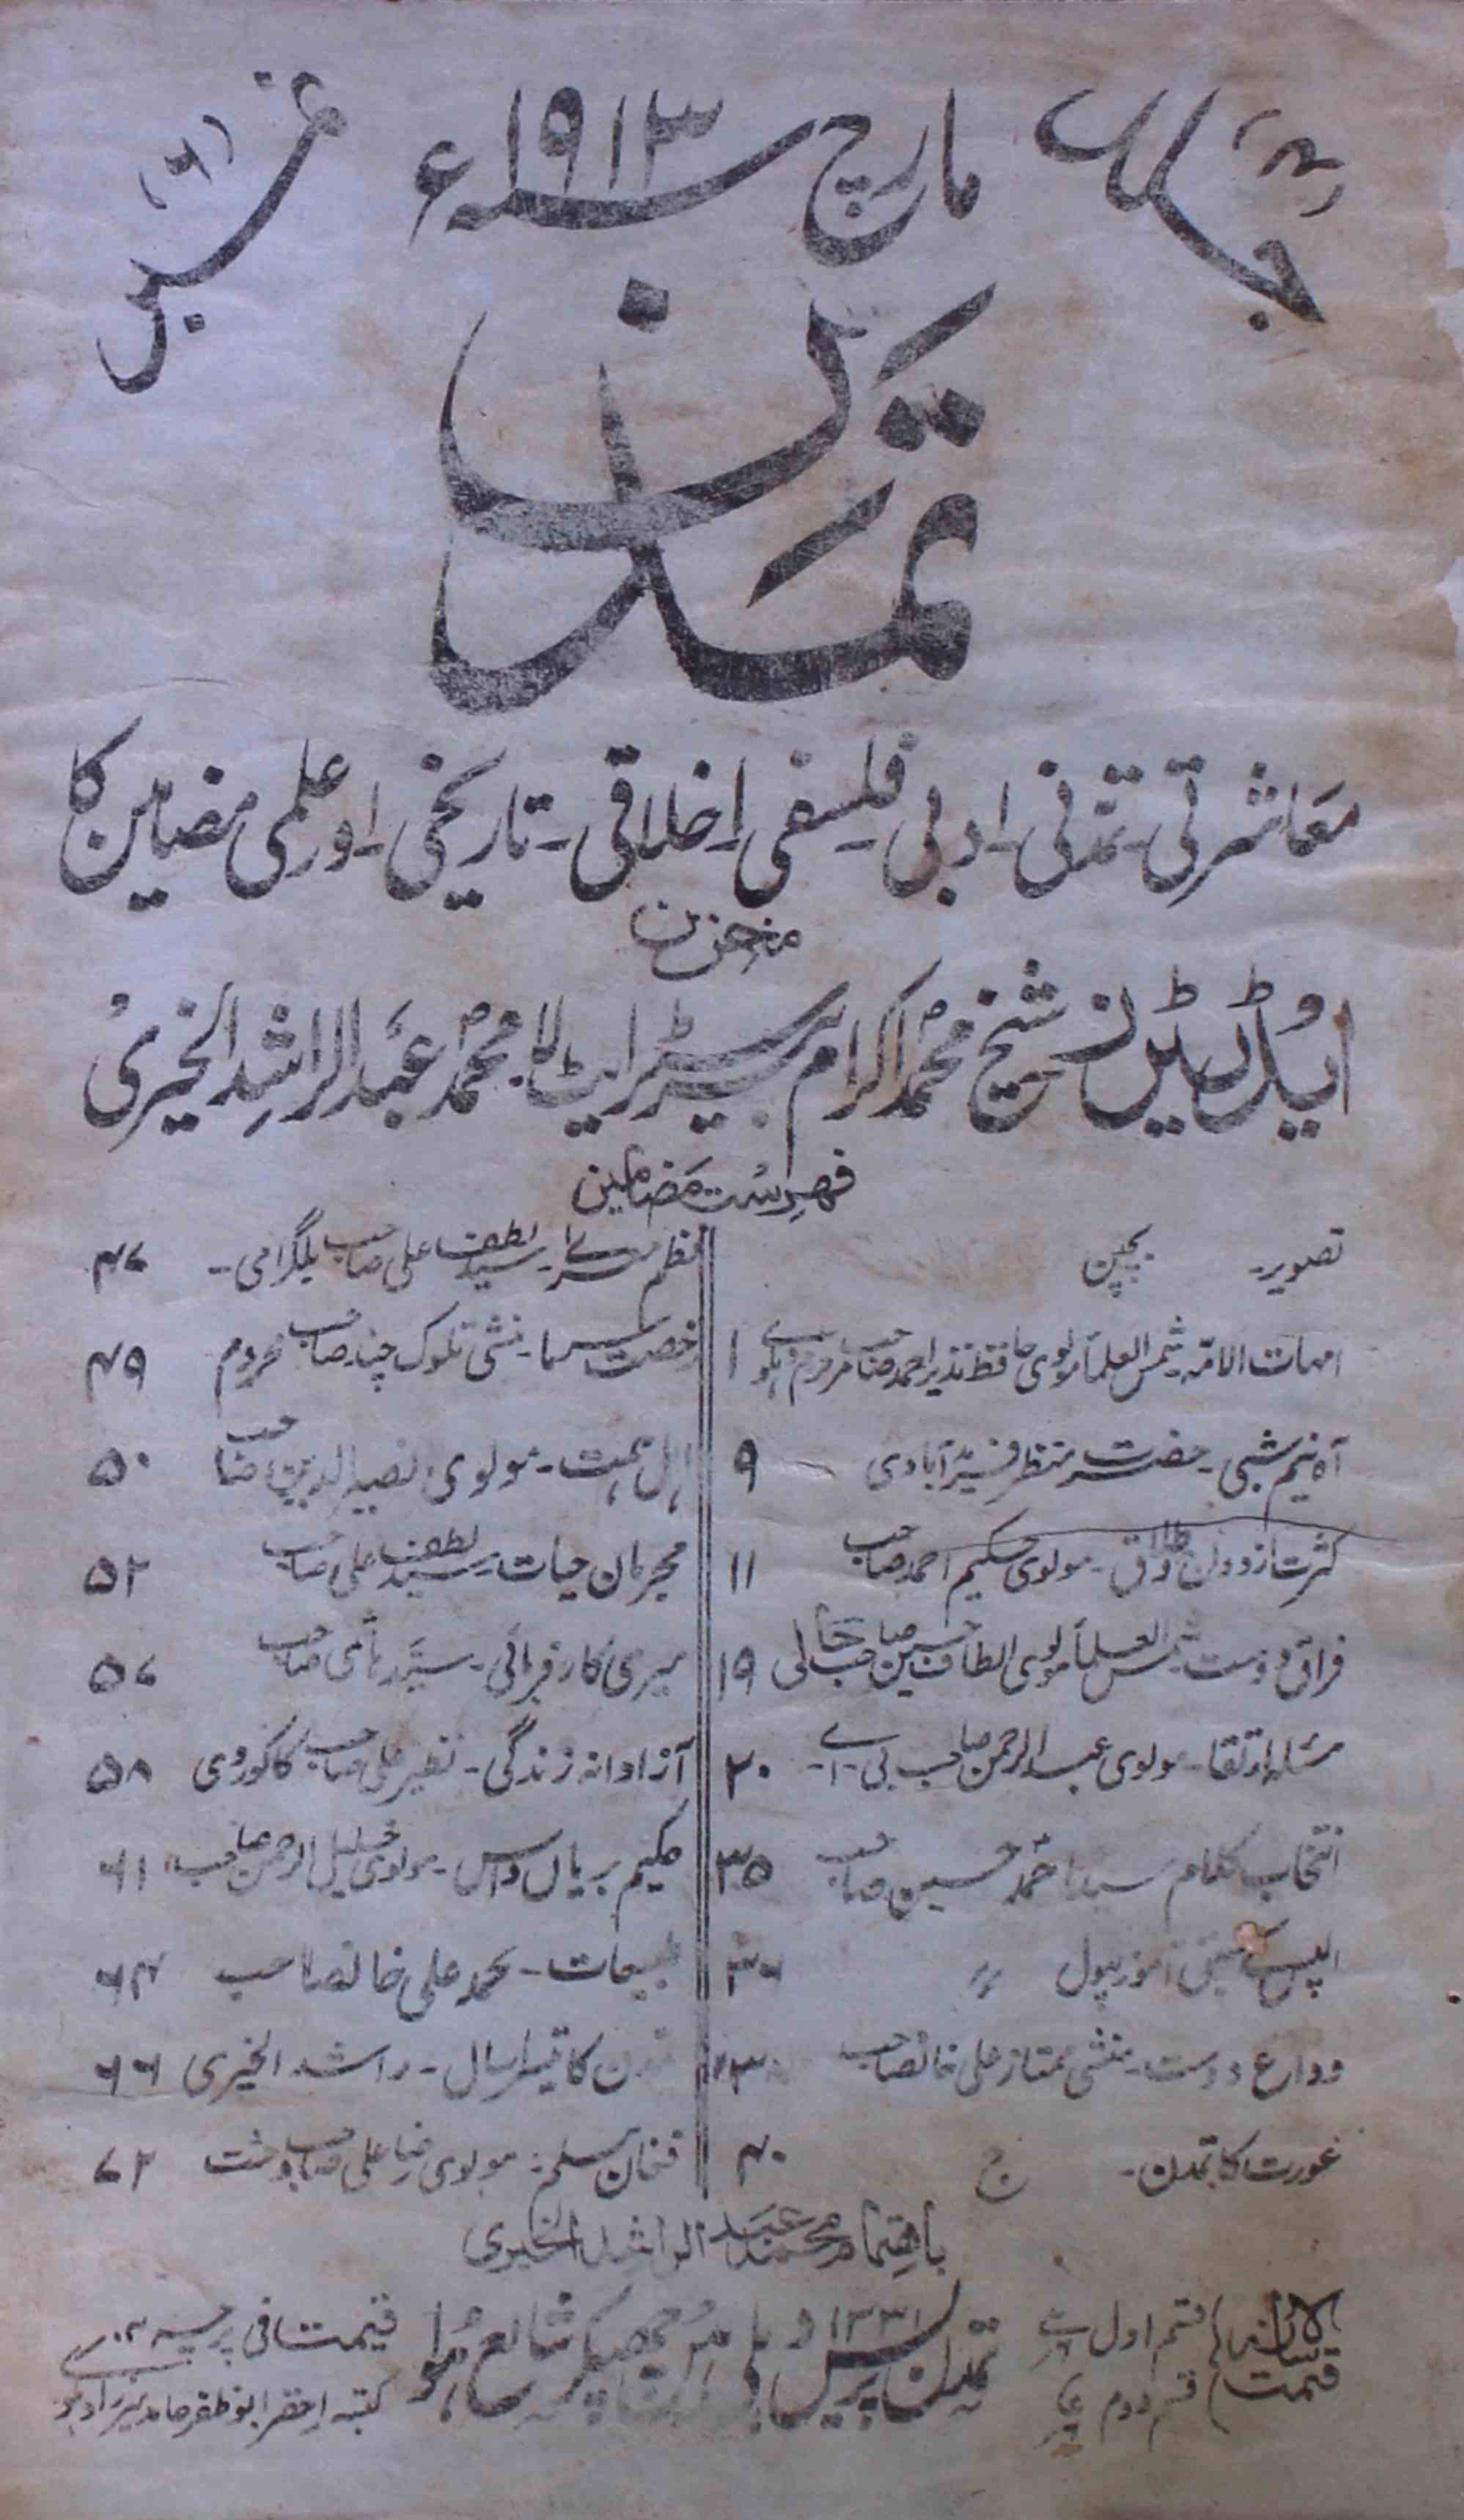 جلد (۴)
مارچ سنہ ۱۹۱۳ء
نمبر (۶)
تمدن
معاشرتی ۔ تمدنی ۔ ادبی ۔ فلسفی ۔ اخلاقی ۔ تاریخی ۔ اور علمی مضامین کا
مخزن
ایڈیٹرز شیخ محمد اکرام بیرسٹر ایٹ لا محمد عبد الراشد الخیری
فہرست مضامین
تصویر۔ بچپن
امہات الامہ۔ شمس العلما مولوی حافظ نذیر احمد صاحب مرحوم دہلوی ۱
آہ نیم شبی۔ حضرت منتظر فیروزآبادی ۹
کثرت ازدواج و طلاق۔ مولوی حکیم احمد صاحب ۱۱
فراق دوست۔ شمس العلما مولوی الطاف حسین صاحب حالی ۱۹
مسئلہ ارتقا۔ مولوی عبد الرحمن صاحب بی۔ اے۔ ۲۰
انتخاب کلام سید احمد حسین صاحب ۳۵
پھول 〃 ۳۶
وداع دوست۔ منشی ممتاز علی خانصاحب
عورت کا تمدن۔ ج ۴۰
نظم سید لطف علی صاحب بلگرامی۔ ۴۷
رخصت سرما۔ منشی تلوک چند صاحب محروم ۴۹
اہل ہمت۔ مولوی نصیر الدین صاحب ۵۰
مجرمان حیات۔ سید لطف علی صاحب ۵۲
میری کارفرمائی۔ سید صاحب ۵۷
آزادانہ زندگی۔ نظیر علی صاحب کاکوروی ۵۸
حکیم داس۔ مولوی خلیل الرحمن صاحب ۶۱
محمد علی خانصاحب ۶۴
تمدن کا تیسرا سال۔ راشد الخیری ۶۶
فغان مسلم۔ مولوی رضا علی صاحب وحشت ۷۲
باہتمام محمد عبد الراشد الخیری
سالانہ قیمت قسم اول
قسم دوم
تمدن پریس دہلی میں چھپکر شائع ہوا
قیمت فی پرچہ
کتبہ احقر ابو ظفر حامد